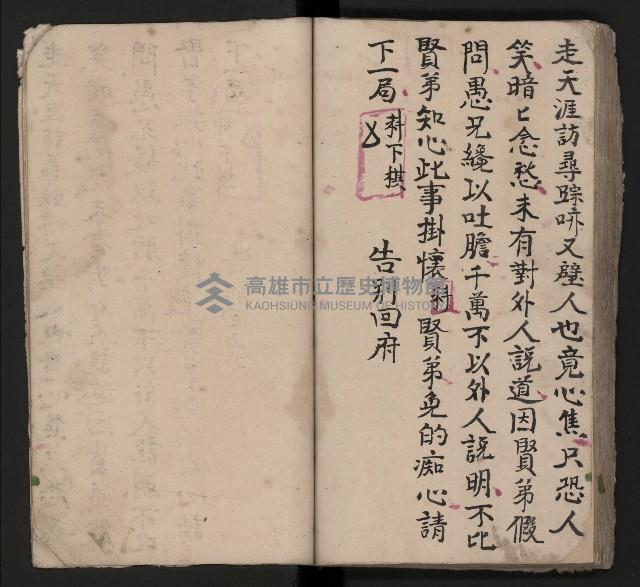 走天涯訪尋踪哧又壁人也竟心焦只恐人
笑暗匕念愁未有對外人說道因賢弟假
問愚兄纔以吐膽千萬不以外人說明不比
賢弟知心此事掛懷 賢弟免的痴心請
下一局 下棋
告 回府
高雄市立歷史博物館
KAOHSIUNG MUSEUM OF HISTORY